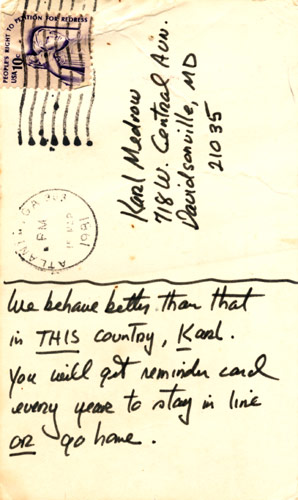 PEOPLE'S RIGHT TO PETITION FOR REDRESS
USA 10c
ATLANTA, GA 303
PM
11 MAR
1981
Karl Medrow
718 W. Central Ave.
Davidsonville, MD
21035
We behave better than that
in THIS country, Karl.
You will get reminder card
every year to stay in line
or go home.